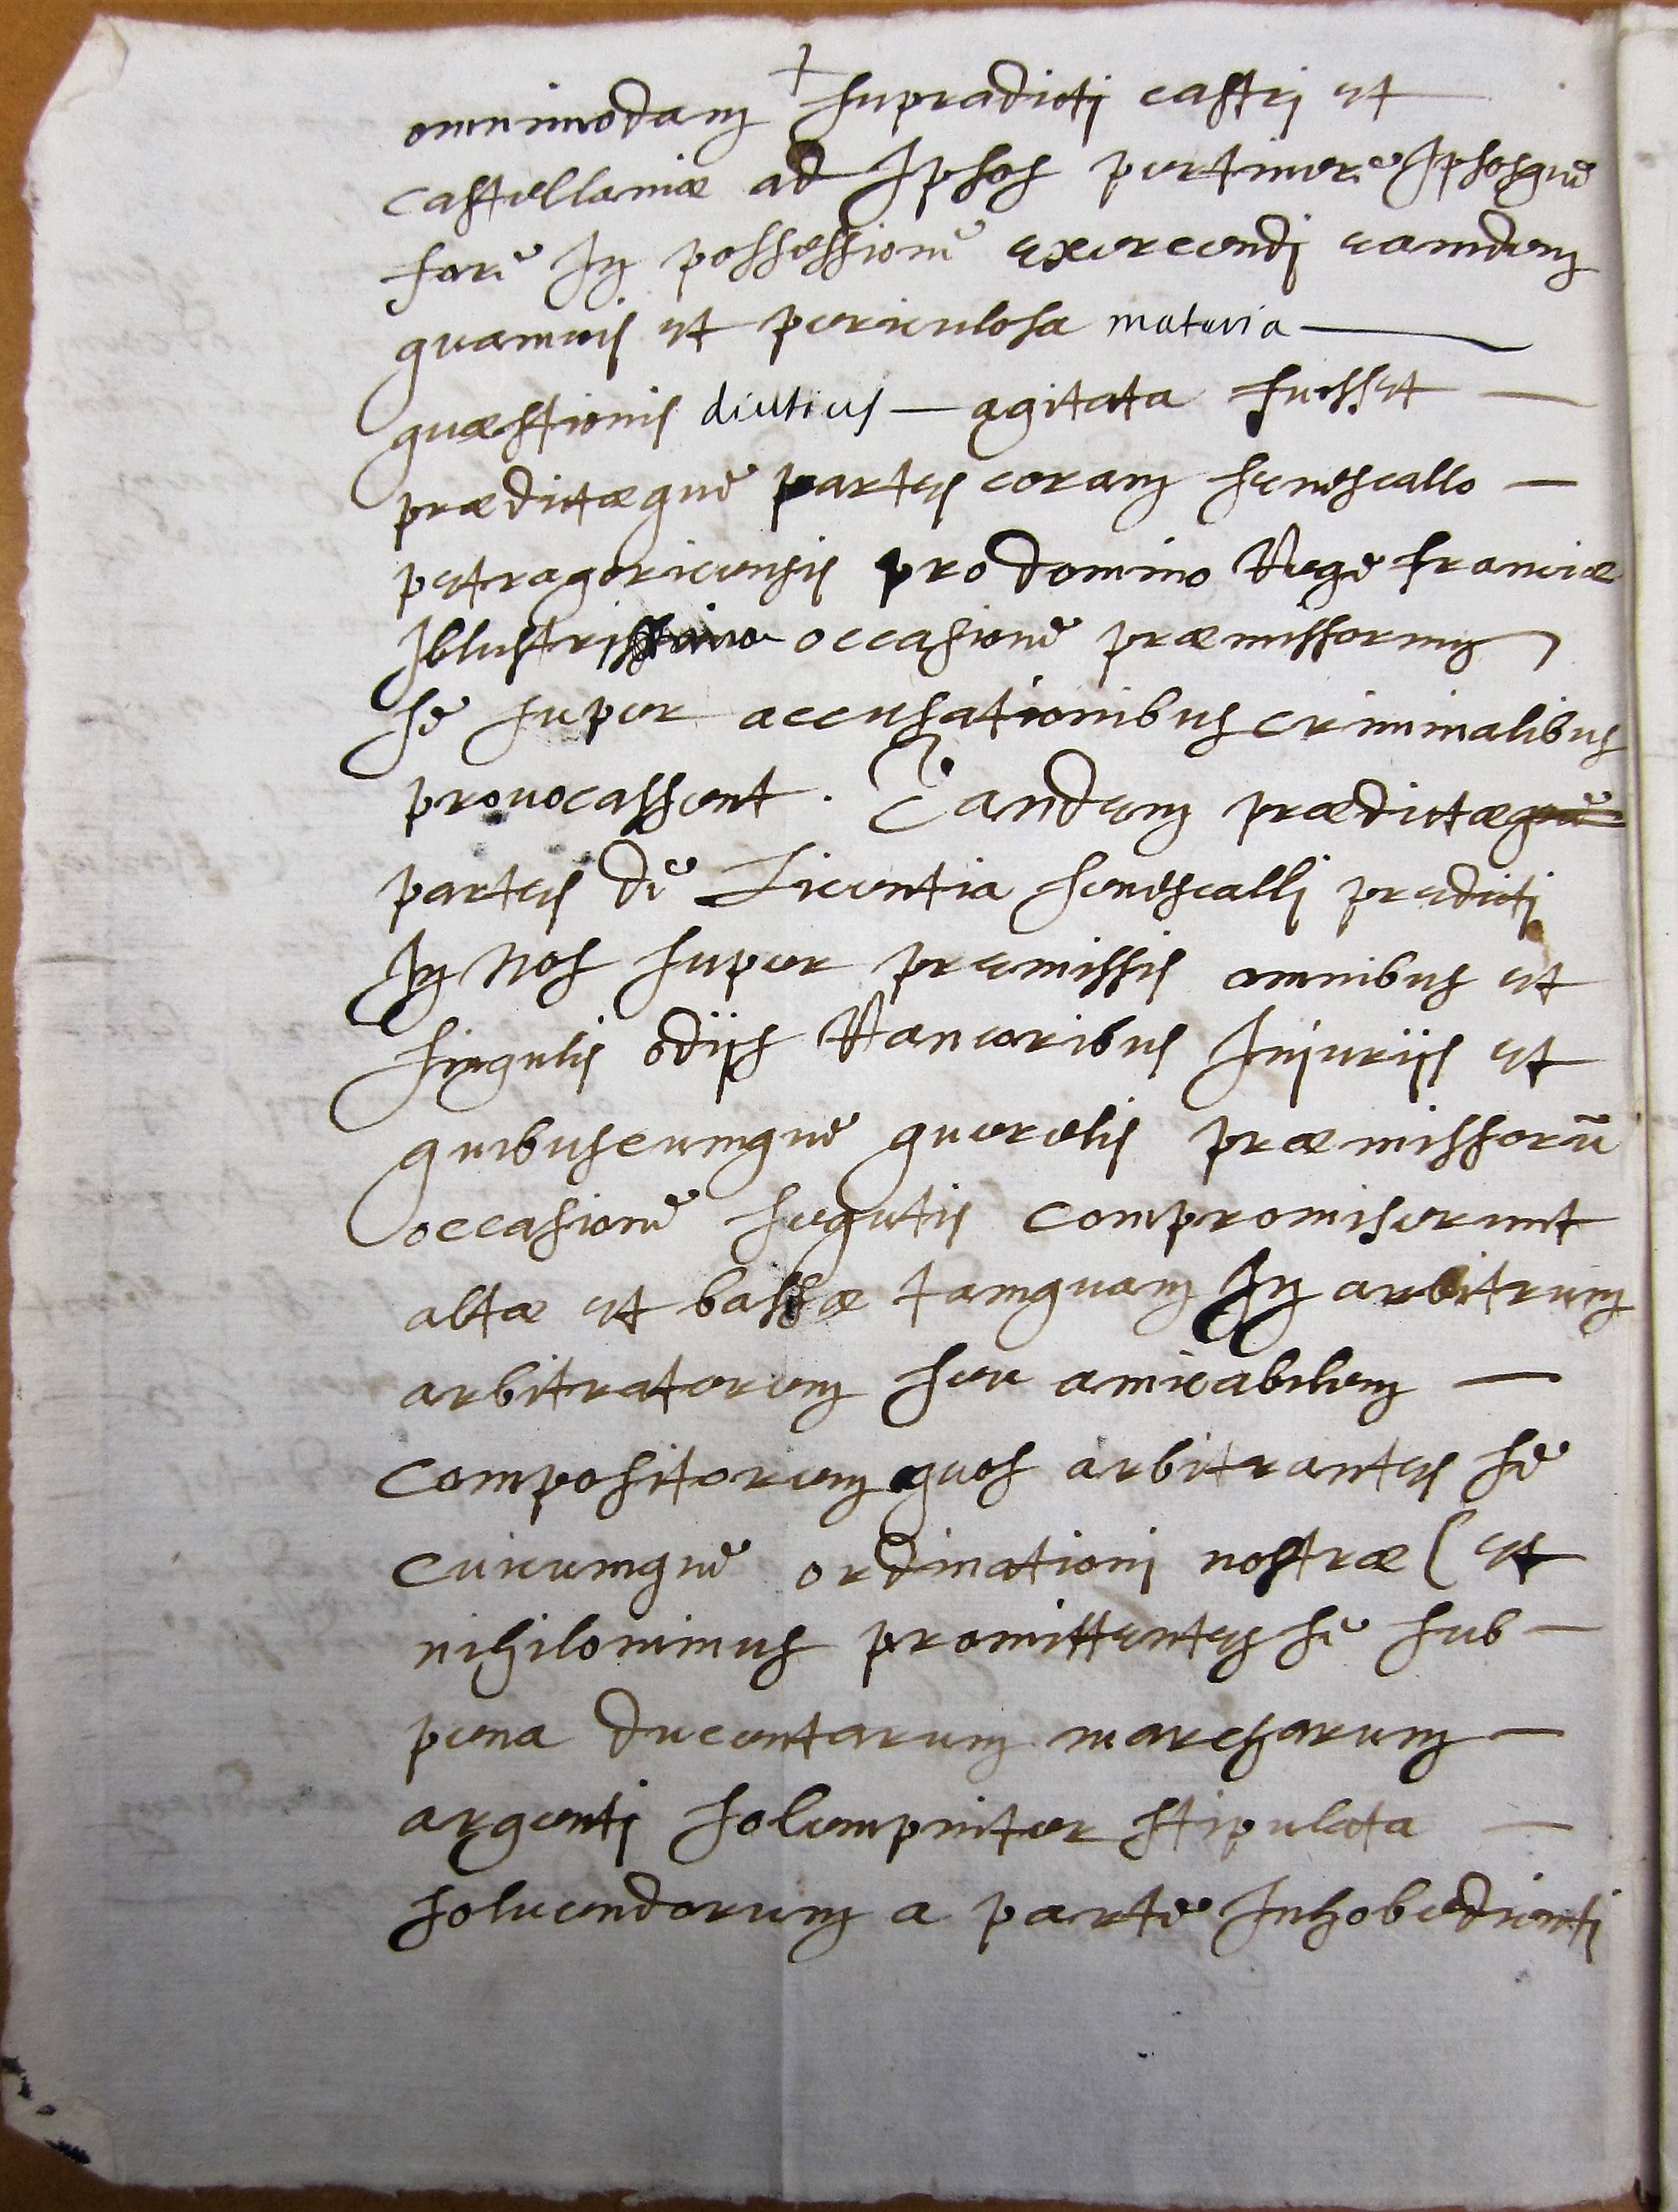 omnimodam + supradicti castri et
castellaniæ ad Ipsos pertinere Ipsosque
fore In possessione exercendi eamdem
quamvis et periculosa materia
quæstionis diutius agitata fuisset
prædictæque partes coram senescallo
petragoricensis pro domino Rege franciæ
Illustrissimo occasione præmissorum
se super accusationibus criminalibus
provocassent. Tandem prædictæque
partes de Licentia senescalli predicti
In nos super premissis omnibus et
singulis odiis Rancoribus Injuriis et
quibuscumque querelis præmissorū
occasione sequtis compromiserunt
altæ et bassæ tamquam In arbitrum
arbitratorem seu amicabilem
compositorem quos arbitrantes se
cuicumque ordinationi nostræ ( et
nihilominus promittentes se sub
pena ducentarum marcharum
argenti solempniter stipulata
solvendorum a parte Inhobedienti